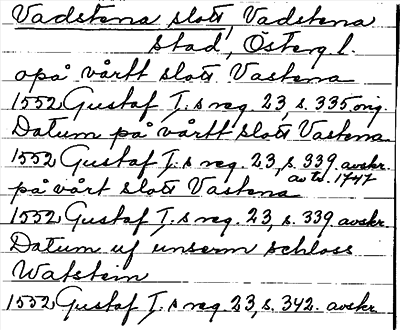 Vadstena slott, Vadstena
stad, Österg. l.
opå vårtt slott Vastena
1552 Gustaf I:s reg. 23, s. 335 orig.
Datum på vårtt slott Vastena
1552 Gustaf I:s reg. 23, s. 339 avskr.
av tr. 1747
på vårt slott Vastena
1552 Gustaf I:s reg. 23, s. 339 avskr.
Datum uf unserm schloss
Watstein
1552 Gustaf I:s reg 23, s. 342. avskr.